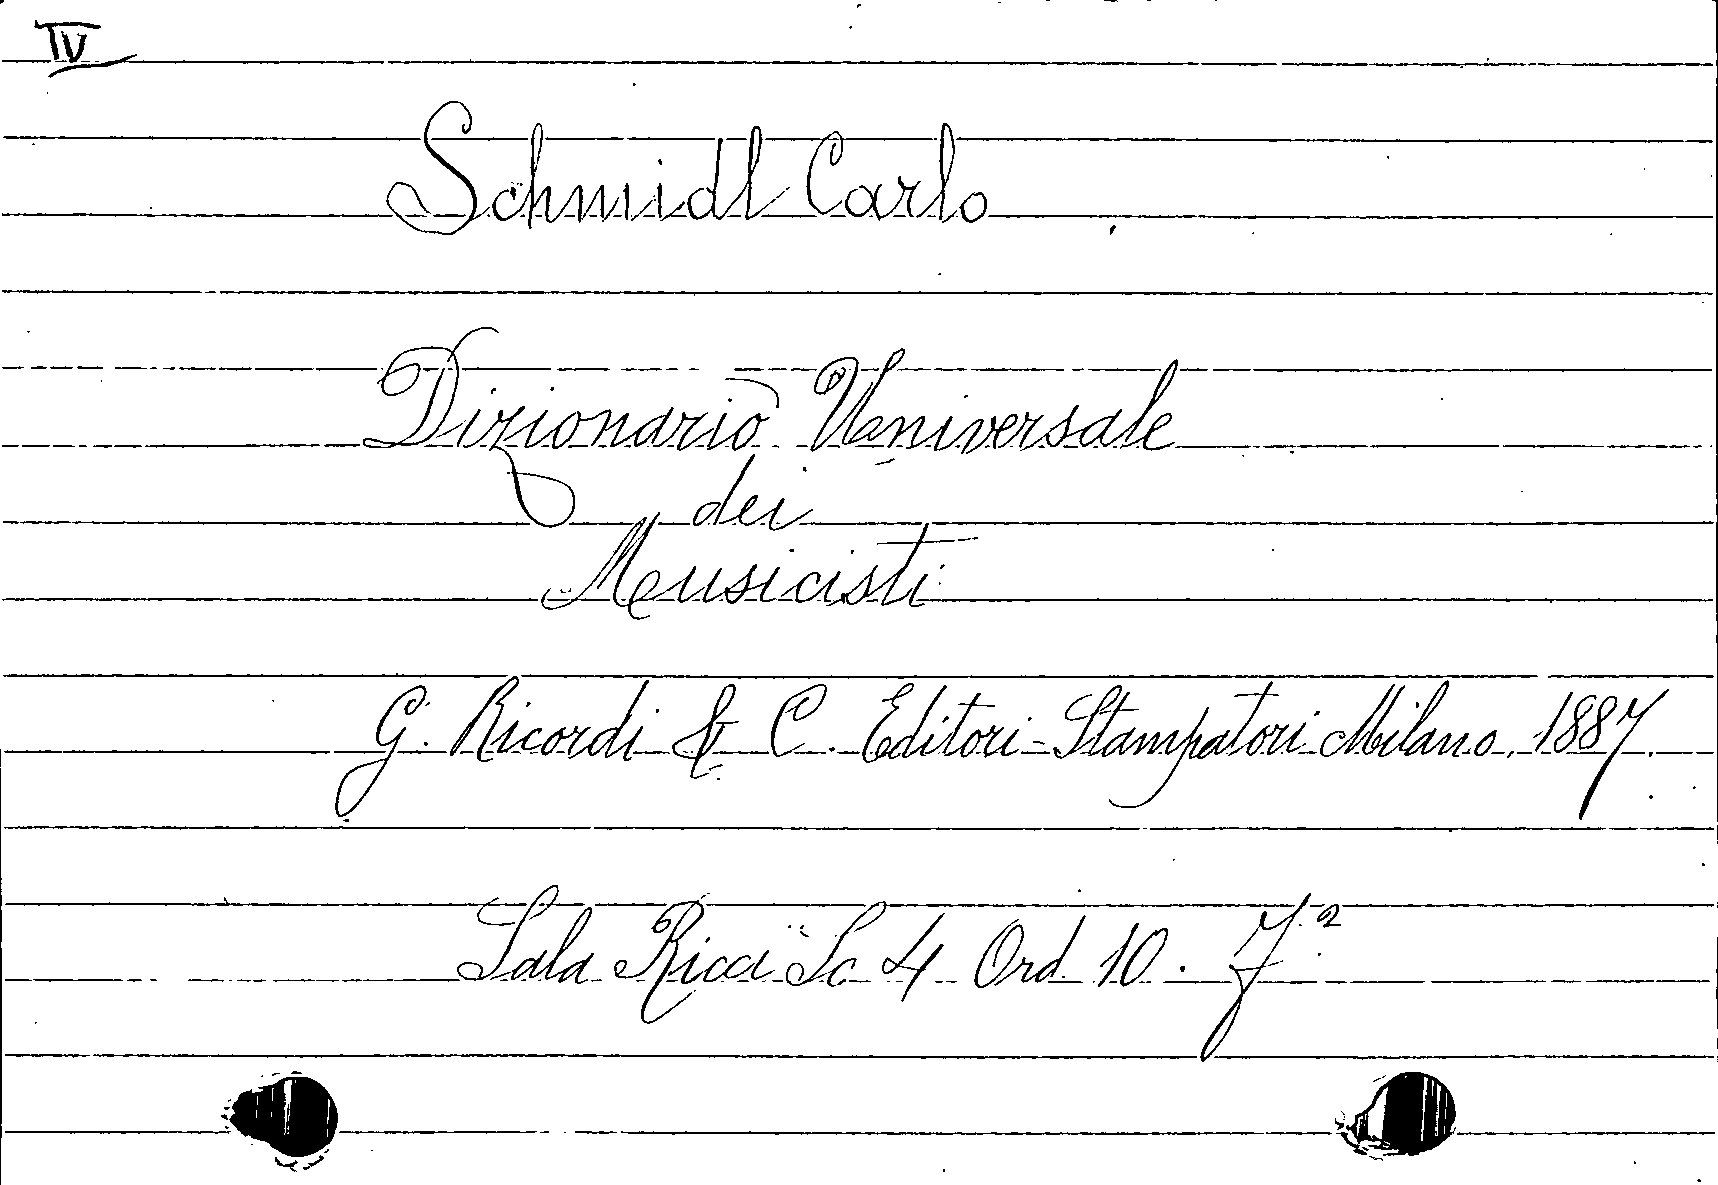 IV
Schmidl Carlo
Dizionario Universale
dei
Musicisti
G. Ricordi & C. Editori-Stampatori Milano, 1887.
Sala Ricci Sc 4 Ord. 10. 7.²